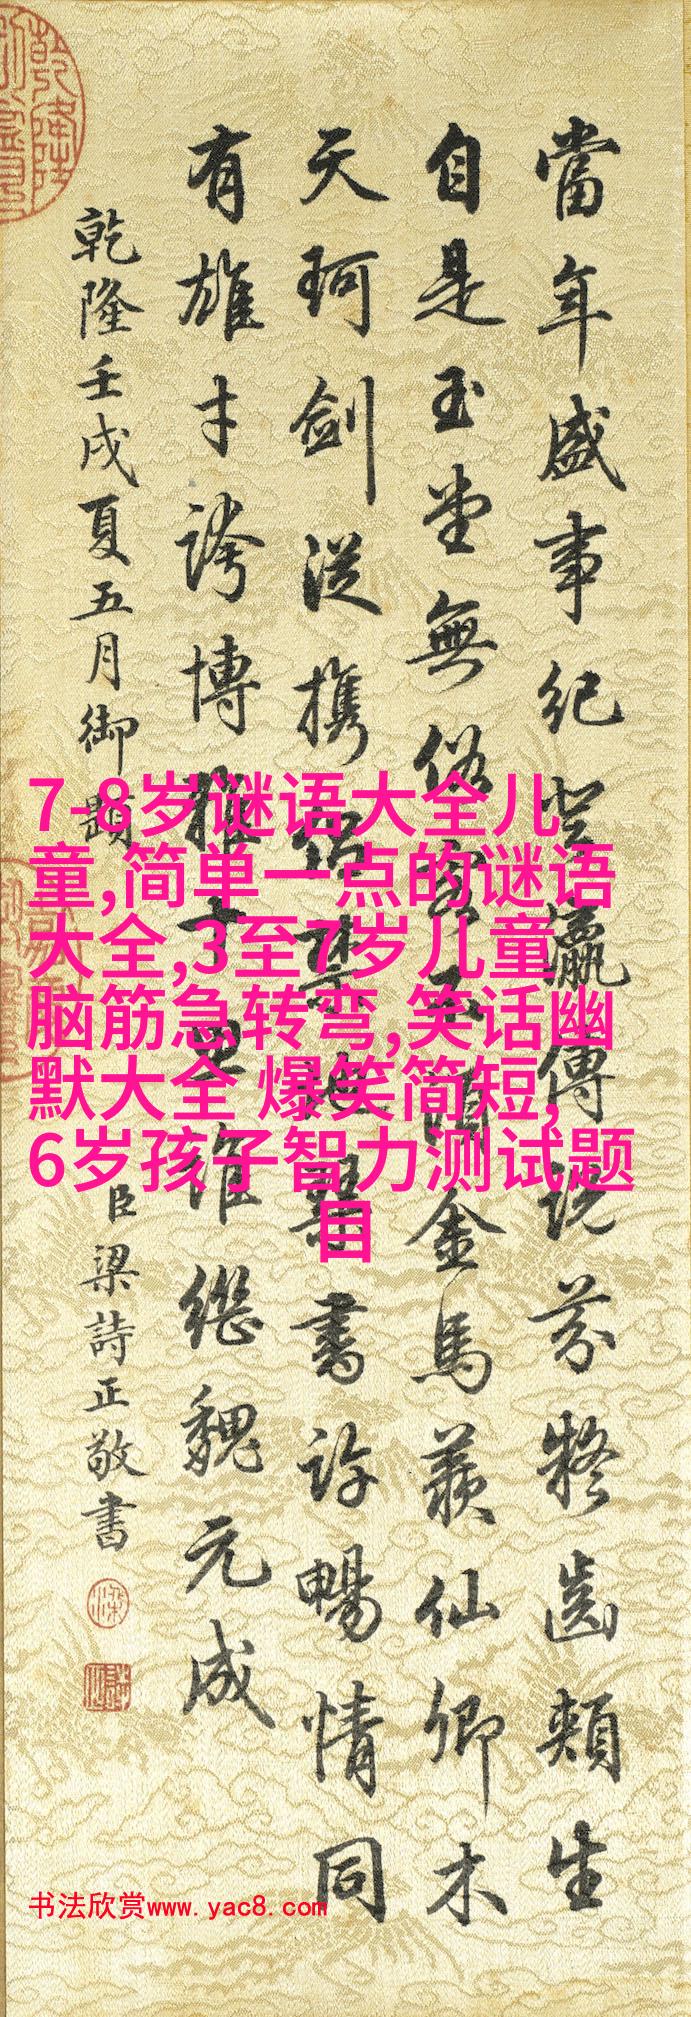 當年盛事紀登瀛傳説芬齒頰生
自是玉堂無俗客不關金馬羨仙卿木
天珂劍從携得禁琴書許暢情同
有雄才誇博雅誰繼魏元成
乾隆壬戌夏五月御題
臣梁詩正敬書
乾隆
7-8岁谜语大全儿
童,简单一点的谜语
大全,3至7岁儿童
脑筋急转弯,笑话幽
默大全 爆笑简短,
6岁孩子智力测试题
目
书法欣赏www.yac8.com